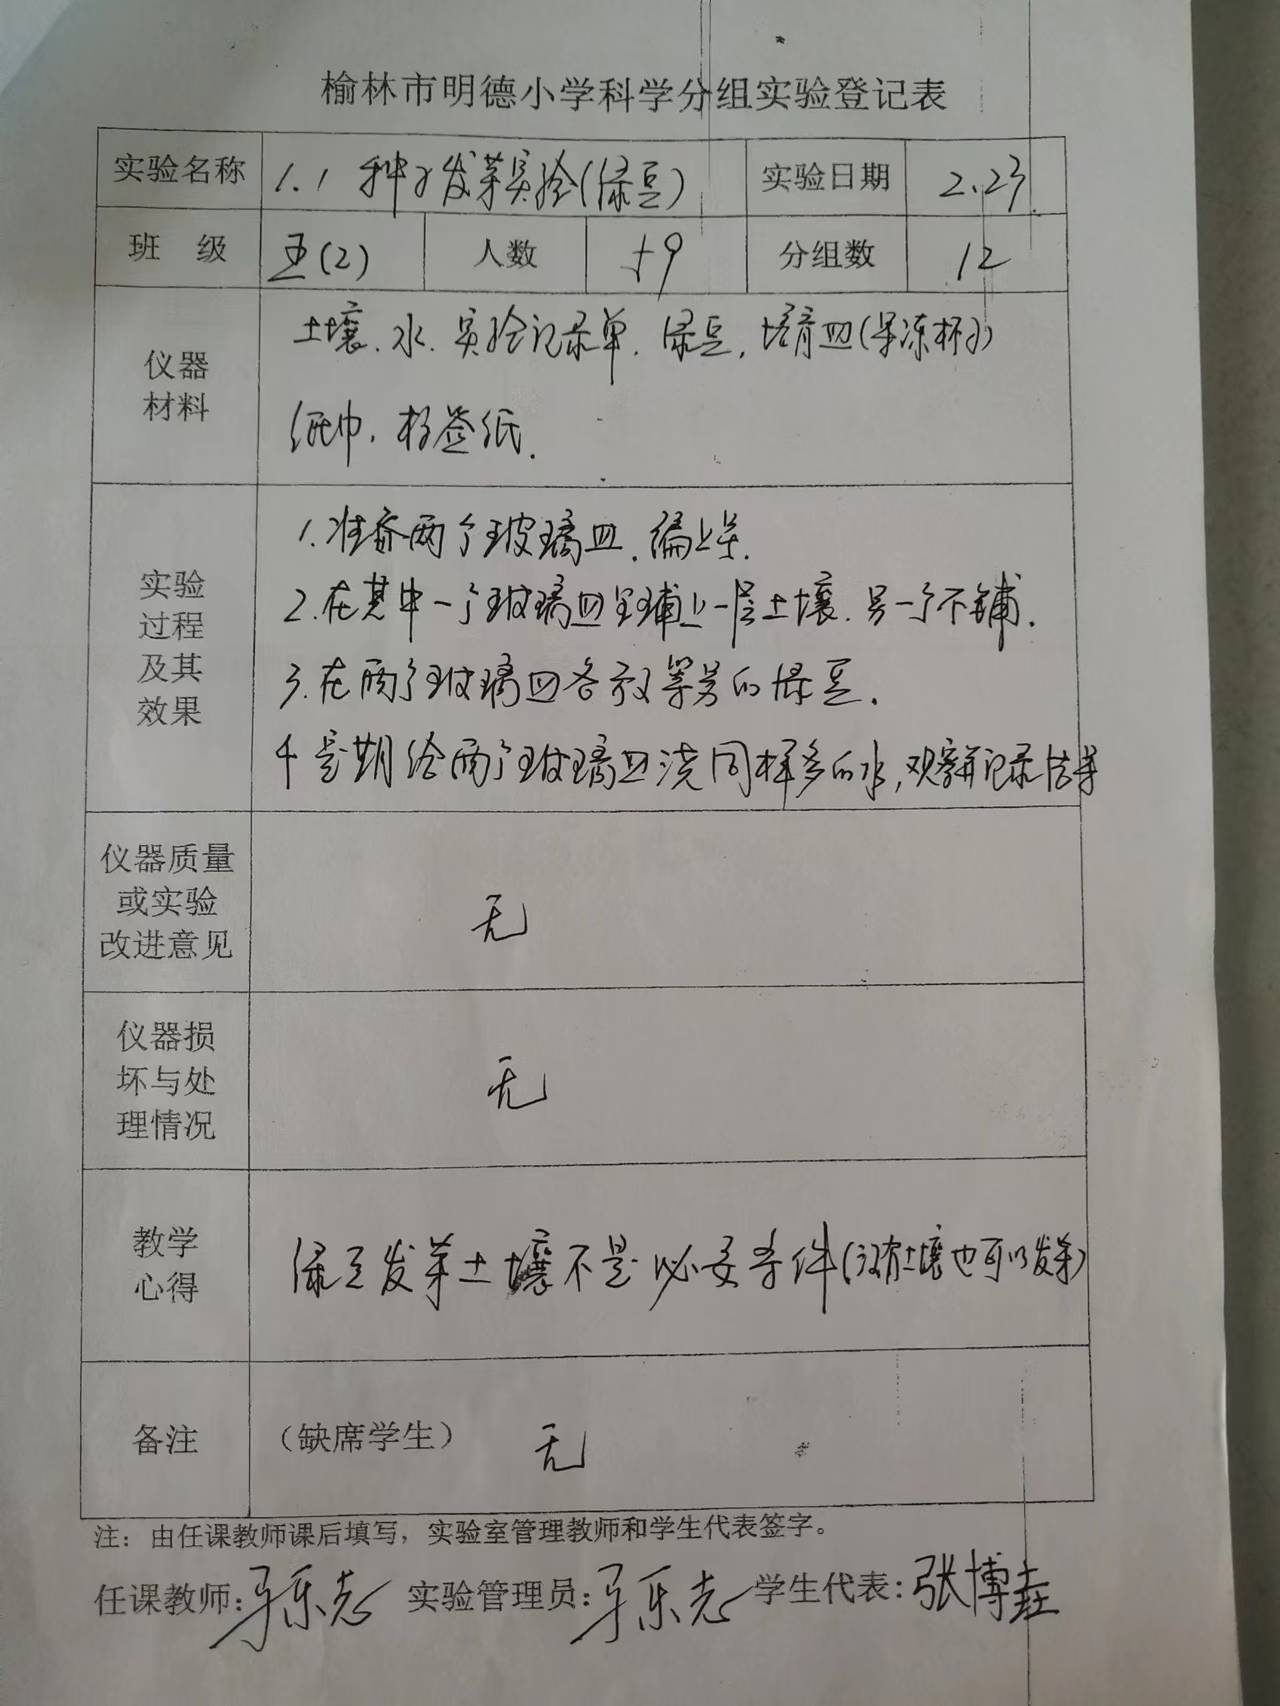 榆林市明德小学科学分组实验登记表
实验名称 1.1 种子发芽实验(绿豆) 实验日期 2.23
班 级 五(2) 人数 59 分组数 12
仪器材料
土壤、水、实验记录单、绿豆,培育皿(果冻杯子)
纸巾、标签纸.
实验过程及其效果
1.准备两个玻璃皿,编上号.
2.在其中一个玻璃皿里铺上一层土壤.另一个不铺.
3.在两个玻璃皿各放等份的绿豆.
4 定期给两个玻璃皿浇同样多的水,观察并记录结果
仪器质量或实验改进意见
无
仪器损坏与处理情况
无
教学心得
绿豆发芽土壤不是必要条件(没有土壤也可以发芽)
备注 (缺席学生) 无
注:由任课教师课后填写,实验室管理教师和学生代表签字。
任课教师: 实验管理员: 学生代表:张博垚